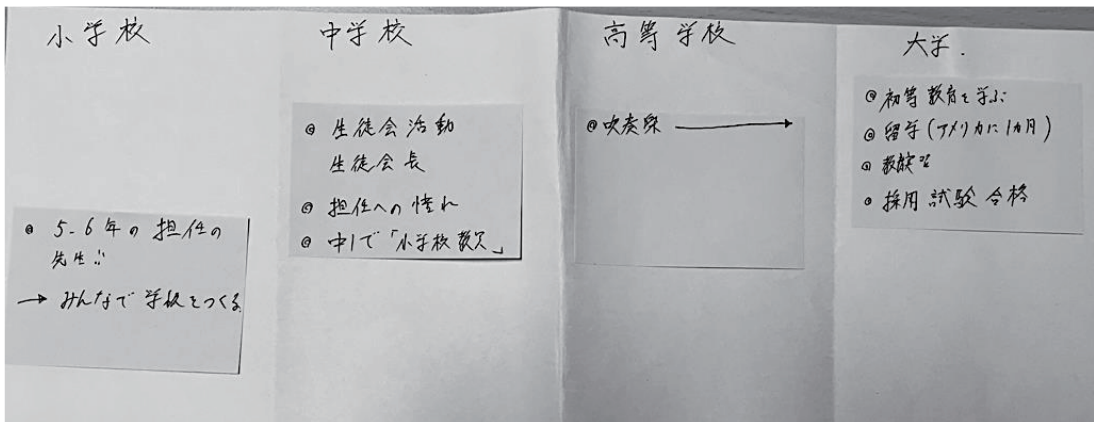 小学校
• 5-6年の担任の
先生!!
→ みんなで学校をつくる
中学校
◎ 生徒会活動
生徒会長
◎ 担任への憧れ
◎ 中1で「小学校教员」
高等学校
◎ 吹奏楽 →
大学.
◎ 初等教育を学ぶ
◎ 留学(アメリカに1カ月)
◎ 教実習
• 採用試験合格